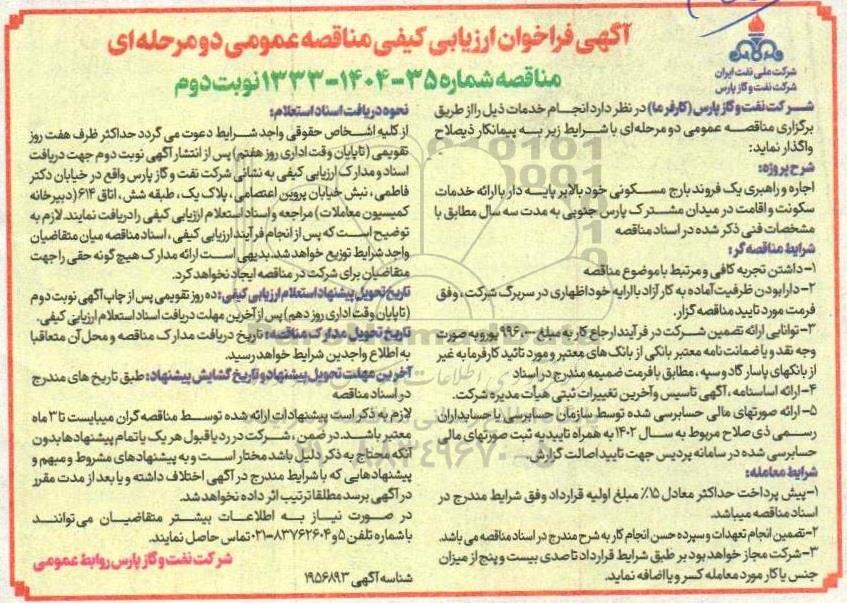 آگهی فراخوان ارزیابی کیفی مناقصه عمومی دو مرحله ای
مناقصه شماره ۳۵-۱۴۰۴-۱۳۳۳ نوبت دوم
شرکت ملی نفت ایران
شرکت نفت و گاز پارس
شرکت نفت و گاز پارس (کارفرما) در نظر دارد انجام خدمات ذیل را از طریق
برگزاری مناقصه عمومی دو مرحله ای با شرایط زیر به پیمانکار ذیصلاح
واگذار نماید:
شرح پروژه:
اجاره و راهبری یک فروند بارج مسکونی خود بالابر پایه دار با ارائه خدمات
سکونت و اقامت در میدان مشترک پارس جنوبی به مدت سه سال مطابق با
مشخصات فنی ذکر شده در اسناد مناقصه
شرایط مناقصه گر:
۱- داشتن تجربه کافی و مرتبط با موضوع مناقصه
۲- دارا بودن ظرفیت آماده به کار آزاد با ارایه خوداظهاری در سربرگ شرکت، وفق
فرمت مورد تایید مناقصه گزار.
۳- توانایی ارائه تضمین شرکت در فرآیند ارجاع کار به مبلغ ۹۹۶,۰۰۰ یورو به صورت
وجه نقد و یا ضمانت نامه معتبر بانکی از بانک های معتبر و مورد تائید کارفرما به غیر
از بانکهای پاسارگاد و سپه، مطابق با فرمت ضمیمه مندرج در اسناد
۴- ارائه اساسنامه، آگهی تاسیس و آخرین تغییرات ثبتی هیأت مدیره شرکت.
۵- ارائه صورتهای مالی حسابرسی شده توسط سازمان حسابرسی یا حسابداران
رسمی ذی صلاح مربوط به سال ۱۴۰۲ به همراه تاییدیه ثبت صورتهای مالی
حسابرسی شده در سامانه پردیس جهت تایید اصالت گزارش.
شرایط معامله:
۱- پیش پرداخت حداکثر معادل ۱۵٪ مبلغ اولیه قرارداد وفق شرایط مندرج در
اسناد مناقصه میباشد.
۲- تضمین انجام تعهدات و سپرده حسن انجام کار به شرح مندرج در اسناد مناقصه می باشد.
۳- شرکت مجاز خواهد بود بر طبق شرایط قرارداد تا صدی بیست و پنج از میزان
جنس یا کار مورد معامله کسر و یا اضافه نماید.
نحوه دریافت اسناد استعلام:
از کلیه اشخاص حقوقی واجد شرایط دعوت می گردد حداکثر ظرف هفت روز
تقویمی (تا پایان وقت اداری روز هفتم) پس از انتشار آگهی نوبت دوم جهت دریافت
اسناد و مدارک ارزیابی کیفی به نشانی شرکت نفت و گاز پارس واقع در خیابان دکتر
فاطمی، نبش خیابان پروین اعتصامی، پلاک یک، طبقه شش، اتاق ۶۱۴ (دبیرخانه
کمیسیون معاملات) مراجعه و اسناد استعلام ارزیابی کیفی را دریافت نمایند. لازم به
توضیح است که پس از انجام فرآیند ارزیابی کیفی، اسناد مناقصه میان متقاضیان
واجد شرایط توزیع خواهد شد. بدیهی است ارائه مدارک هیچ گونه حقی را جهت
متقاضیان برای شرکت در مناقصه ایجاد نخواهد کرد.
تاریخ تحویل پیشنهاد استعلام ارزیابی کیفی: ده روز تقویمی پس از چاپ آگهی نوبت دوم
(تا پایان وقت اداری روز دهم) پس از آخرین مهلت دریافت اسناد استعلام ارزیابی کیفی.
تاریخ تحویل مدارک مناقصه: تاریخ دریافت مدارک مناقصه و محل آن متعاقبا
به اطلاع واجدین شرایط خواهد رسید.
آخرین مهلت تحویل پیشنهاد و تاریخ گشایش پیشنهاد: طبق تاریخ های مندرج
در اسناد مناقصه
لازم به ذکر است پیشنهادات ارائه شده توسط مناقصه گران میبایست تا ۳ ماه
معتبر باشد. در ضمن، شرکت در رد یا قبول هر یک یا تمام پیشنهادها بدون
آنکه محتاج به ذکر دلیل باشد مختار است و به پیشنهادهای مشروط و مبهم و
پیشنهادهایی که با شرایط مندرج در آگهی اختلاف داشته و یا بعد از مدت مقرر
در آگهی برسد مطلقا ترتیب اثر داده نخواهد شد.
در صورت نیاز به اطلاعات بیشتر متقاضیان می توانند
با شماره تلفن ۵ و ۸۳۷۶۲۶۰۴-۰۲۱ تماس حاصل نمایند.
شرکت نفت و گاز پارس روابط عمومی
شناسه آگهی ۱۹۵۶۸۹۳